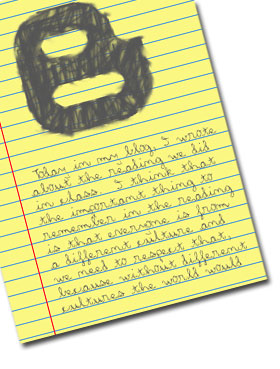 Today in my blog, I wrote
about the reading we did
in class. I think that
the important thing to
remember in the reading
is that everyone is from
a different culture and
we need to respect that
because without different
cultures the world would